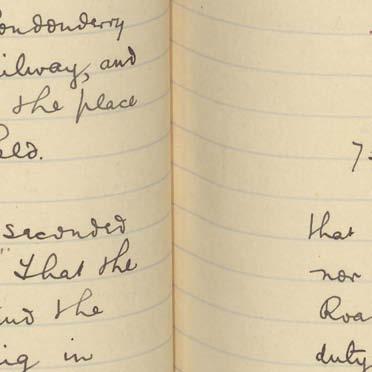 ondonderry
ilway, and
the place
eld.
seconded
" That the
and the
ig in
7
that
nor
Roa
duty